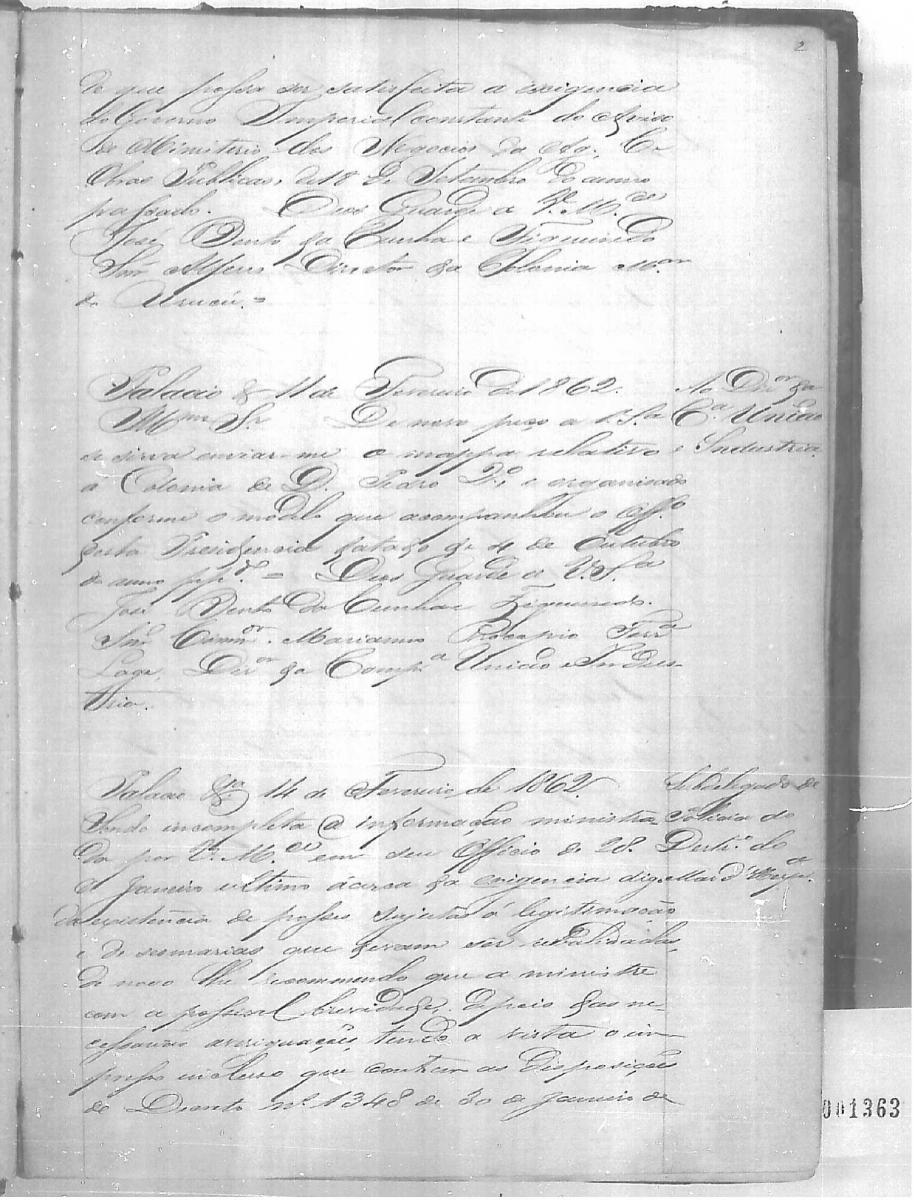 2
de que possa ser satisfeita a exigencia
do Governo Imperial constante do Aviso
do Ministerio dos Negocios da Ag.ª C. e
Obras Publicas, de 18 de Setembro do anno
passado. Deos Guarde a V. M.ce
José Bento da Cunha e Figueiredo
Snr Alferes Director da Colonia M.ar
do Urucú. =
Palacio &ª 11 de Fevereiro de 1862.
Ao Dir.or da
C.ª União
e Industria.
Illmo Sr. De novo peço a V. S.ª
se sirva enviar-me o mappa relativo
a Colonia de D. Pedro 2.º, e organisado
conforme o modelo que acompanhou o off.º
desta Presidencia datado de 4 de Outubro
do anno p.p.º = Deos Guarde a V. S.ª
José Bento da Cunha e Figueiredo.
Snr. Comm.or Marianno Procopio Ferr.ª
Lage, Dir.or da Comp.ª União e Indus-
tria.
Palacio &ª 14 de Fevereiro de 1862.
Subdelegado de
Policia do
Destr.º do
Mar d'Hesp.ª
Sendo incompleta a informação ministra
da por V. M.ce em seu Officio de 28 de
Janeiro ultimo ácerca da exigencia digo
da existencia de posses sujeitas á legitimação
e de sesmarias que devam ser revalidadas,
de novo lhe recommendo que a ministre
com a possivel brevidade, depois das ne-
cessarias averiguações, tendo a vista o im-
presso incluso que contem as disposições
do Decreto nº 1348 de 30 de Janeiro de
001363